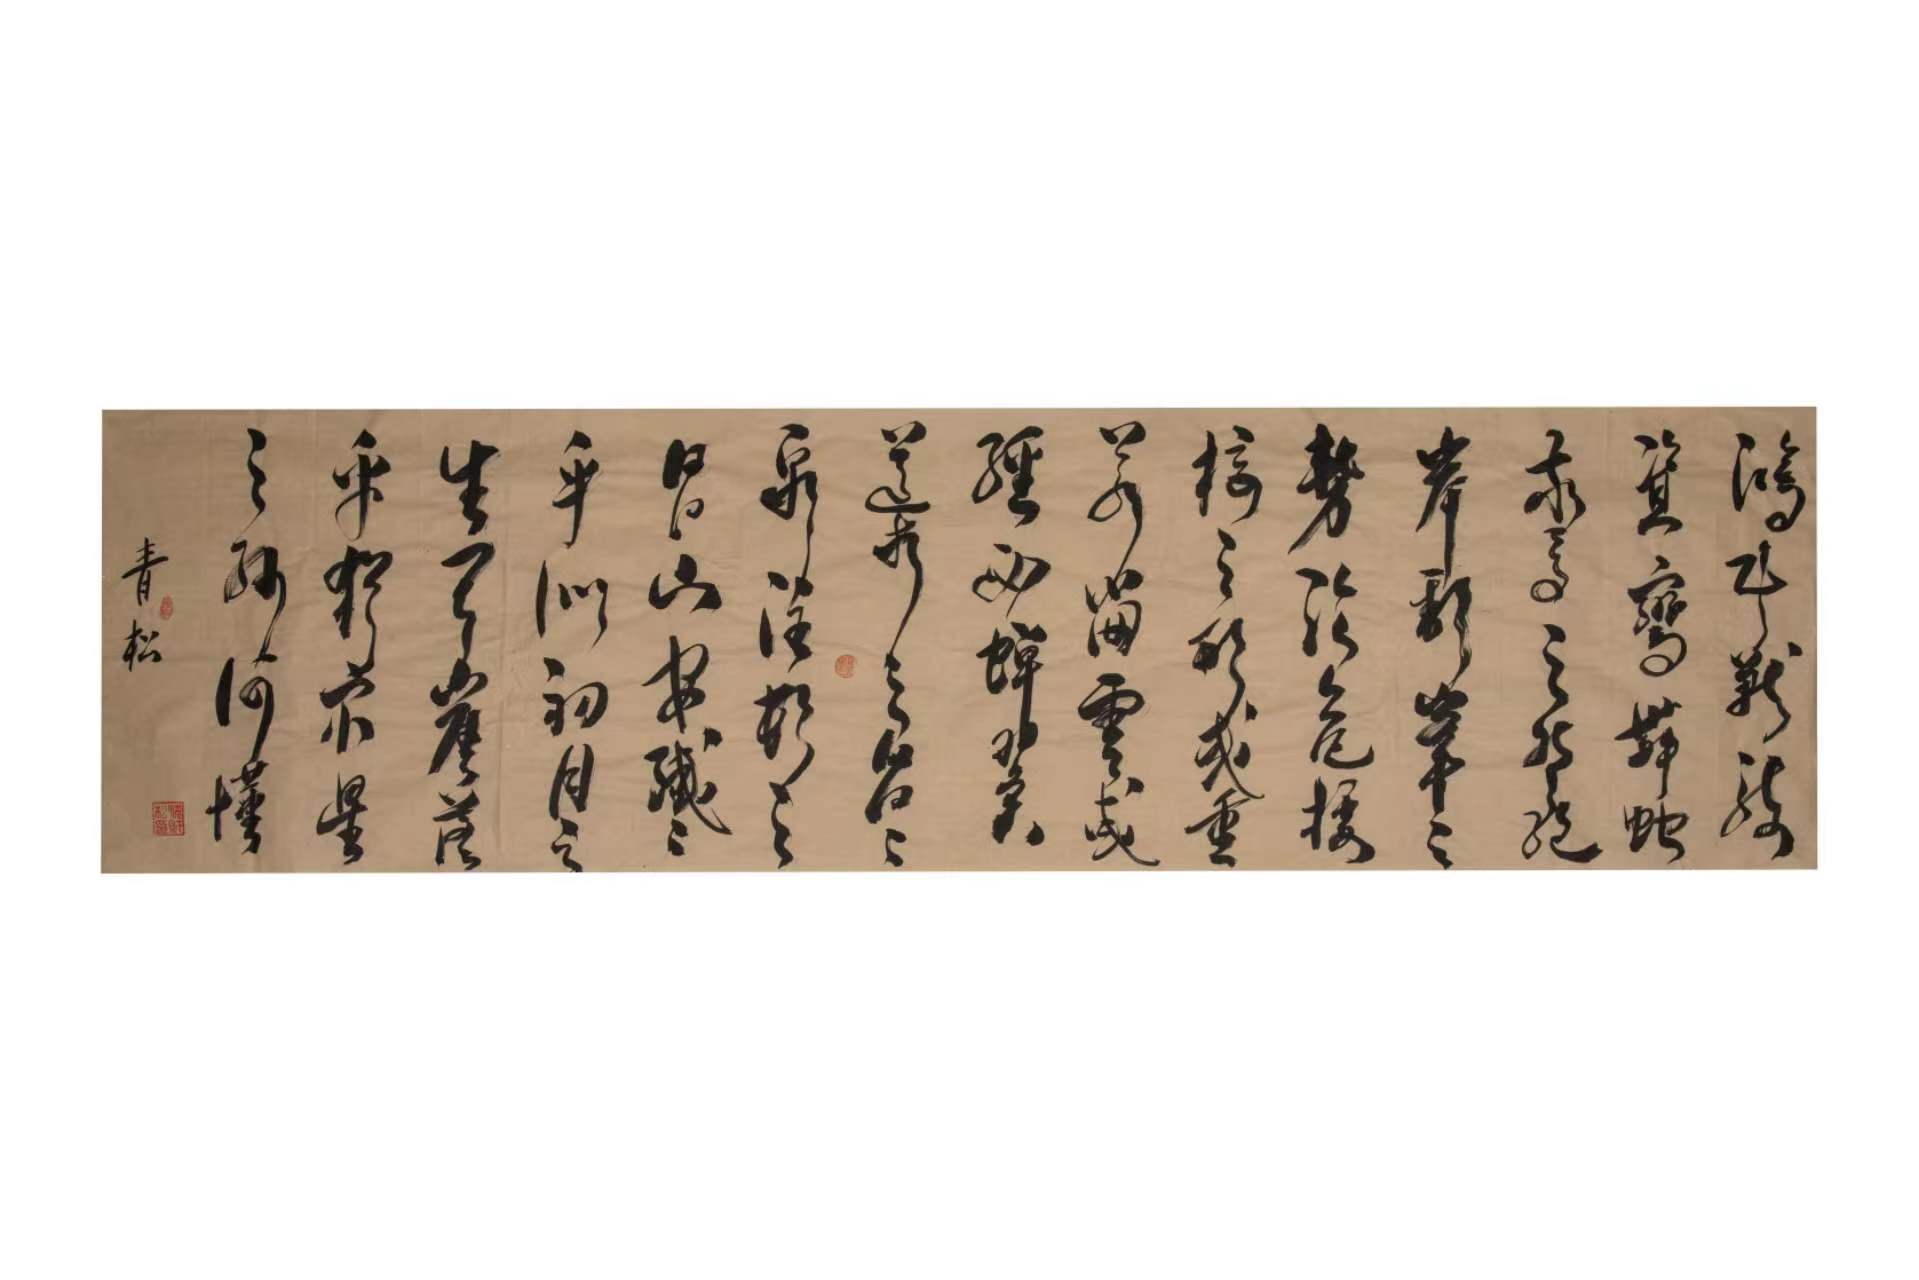 鴻飛獸駭
資鸞舞蛇
驚之態絕
岸頹峯之
勢臨危據
槁之形或重
若崩雲或
輕如蟬翼
導之則
泉注頓之
則山安纖〻
乎似初月之
出天崖落
乎猶衆星
之列河漢
青松